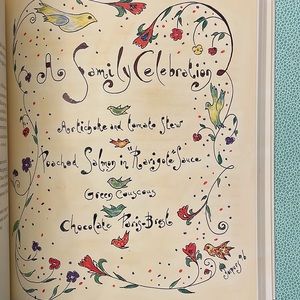 A Family Celebration
Artichoke and tomato Stew
Poached Salmon in "Ravigote" Sauce
Green Couscous
Chocolate Paris-Brest